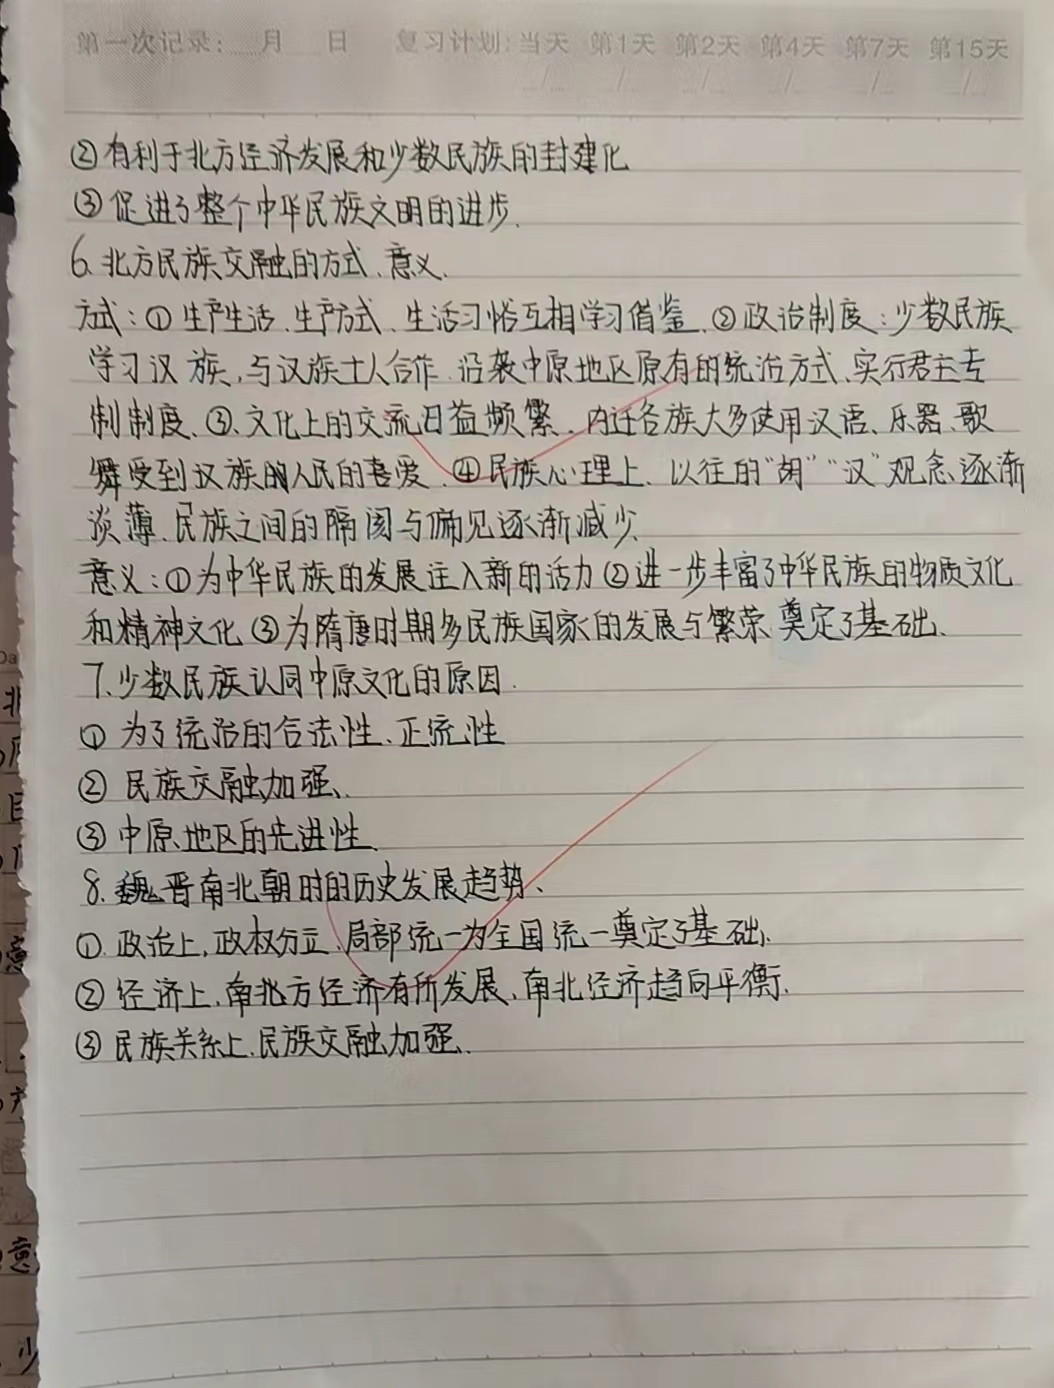 第一次记录: 月 日 复习计划: 当天 第1天 第2天 第4天 第7天 第15天
②有利于北方经济发展和少数民族的封建化
③促进了整个中华民族文明的进步.
6.北方民族交融的方式、意义.
方式:①生产生活、生产方式、生活习惜互相学习借鉴.②政治制度:少数民族
学习汉族,与汉族士人合作.沿袭中原地区原有的统治方式.实行君主专
制制度、③.文化上的交流日益频繁.内迁各族大多使用汉语、乐器、歌
舞受到汉族的人民的喜爱.④民族心理上、以往的“胡”“汉”观念逐渐
淡薄.民族之间的隔阂与偏见逐渐减少.
意义:①为中华民族的发展注入新的活力②进一步丰富了中华民族的物质文化
和精神文化③为隋唐时期多民族国家的发展与繁荣奠定了基础.
7.少数民族认同中原文化的原因.
①为了统治的合法性、正统性
②民族交融加强.
③中原地区的先进性.
8.魏晋南北朝时的历史发展趋势、
①.政治上,政权分立.局部统一为全国统一奠定了基础.
②经济上,南北方经济有所发展、南北经济趋向平衡.
③民族关系上.民族交融加强.